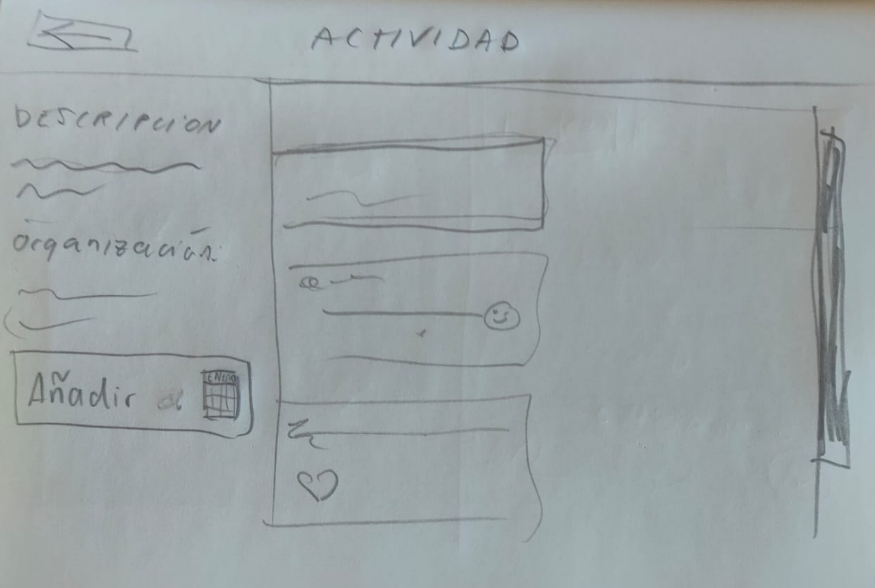 ACTIVIDAD
DESCRIPCION
Organización
Añadir